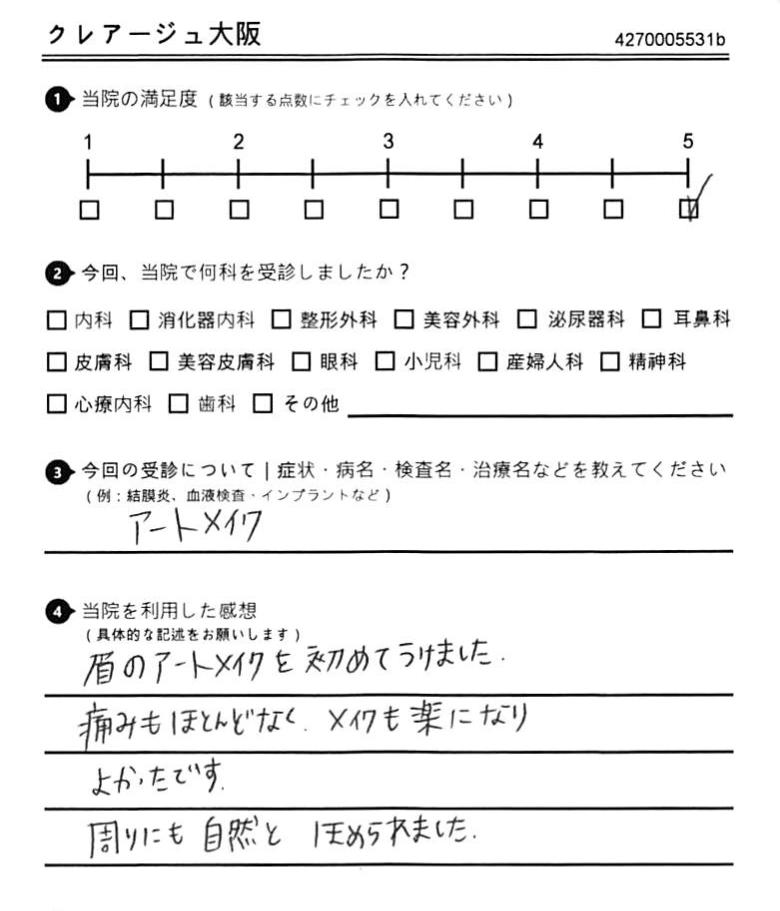 クレアージュ大阪 4270005531b
1 当院の満足度（該当する点数にチェックを入れてください）
1 2 3 4 5
2 今回、当院で何科を受診しましたか？
内科 消化器内科 整形外科 美容外科 泌尿器科 耳鼻科
皮膚科 美容皮膚科 眼科 小児科 産婦人科 精神科
心療内科 歯科 その他
3 今回の受診について | 症状・病名・検査名・治療名などを教えてください
（例：結膜炎、血液検査・インプラントなど）
アートメイク
4 当院を利用した感想
（具体的な記述をお願いします）
眉のアートメイクを初めてうけました.
痛みもほとんどなく. メイクも楽になり
よかったです.
周りにも自然とほめられました.